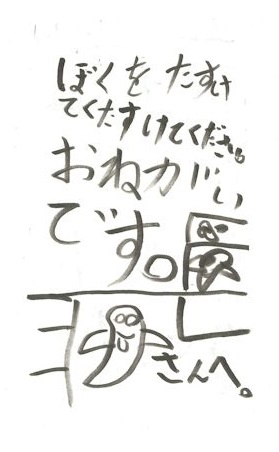 ぼくを たすけ
てくたすけてください。
おねがい
です。
さんへ。